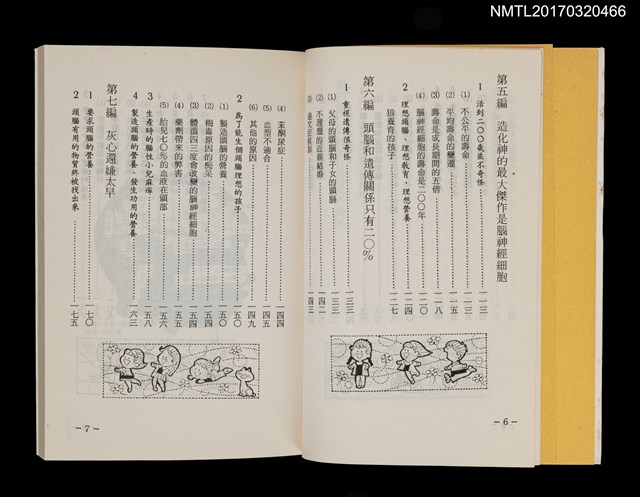 NMTL20170320466
第五編　造化神的最大傑作是腦神經細胞
1 活到二〇〇歲並不奇怪………一一三
(1) 不公平的壽命………一一三
(2) 平均壽命的變遷………一一五
(3) 壽命是成長期間的五倍………一一八
(4) 腦神經細胞的壽命是二〇〇年………一二〇
2 理想頭腦、理想教育、理想營養………一二四
狼養育的孩子………一二七
第六編　頭腦和遺傳關係只有二〇%
1 重視遺傳很奇怪………一三三
(1) 父母的頭腦和子女的頭腦………一三三
(2) 不理想的近親結婚………一四二
一四三
－6－
(4) 苯酮尿症………一四四
(5) 血型不適合………一四五
(6) 其他的原因………一四九
2 爲了能生個頭腦理想的孩子………一五〇
(1) 製造頭腦的營養………一五〇
(2) 梅毒原因的痴呆………一五四
(3) 體溫四三度會改變的腦神經細胞………一五五
(4) 藥劑帶來的弊害………一五五
(5) 胎兒七〇%的血液在頭部………一五六
3 生產時的腦性小兒麻痺………一五八
4 製造頭腦的營養、發生功用的營養………一六三
第七編　灰心還嫌太早
1 要求頭腦的營養………一七〇
2 頭腦有用的物質終被找出來………一七五
－7－